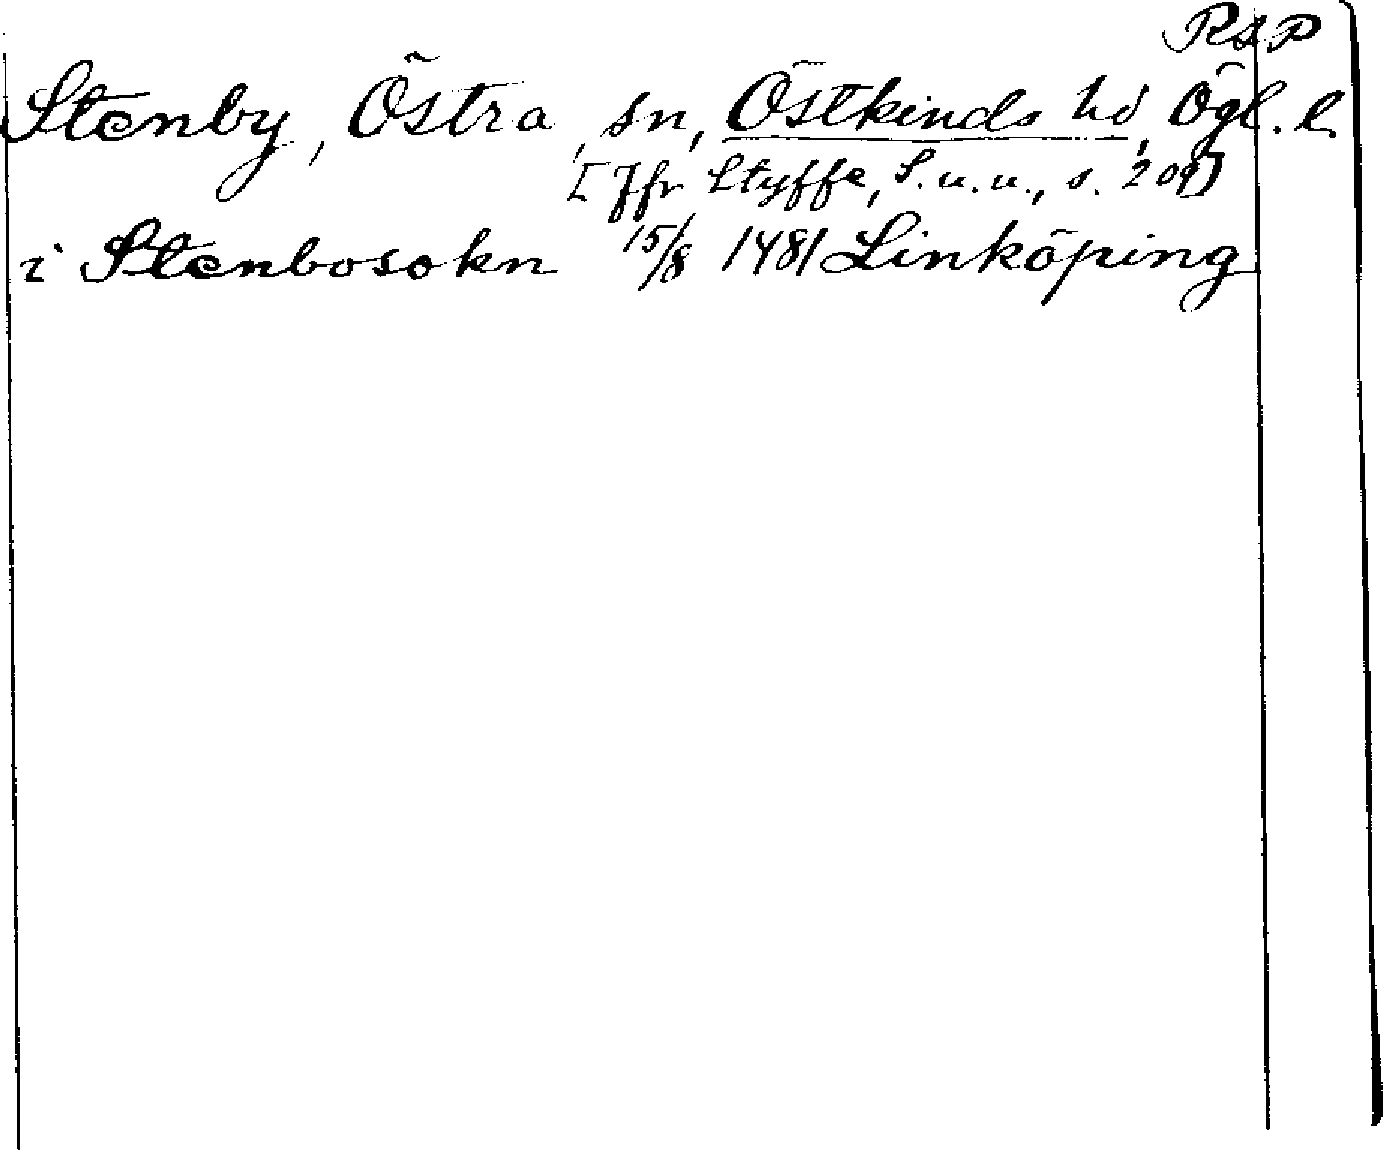 RSP
Stenby, Östra, sn, Östkinds hd, Ögl. l.
[Jfr Styffe, S.u.u., s. 209]
i Stenbosokn 15/8 1481 Linköping